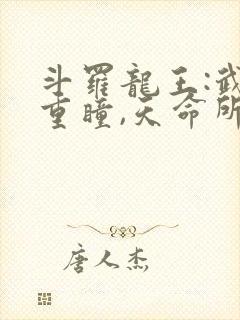 斗羅龍王:武
重瞳,天命所
唐人杰